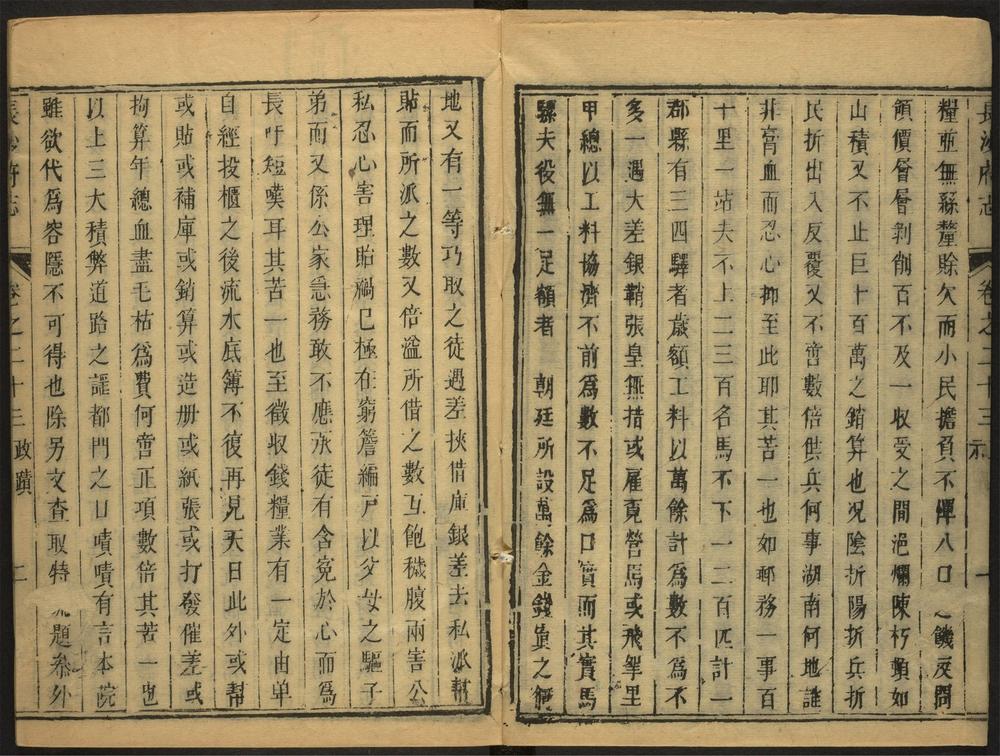 長沙府志 卷之二十三 示 一
糧並無絲釐賒欠而小民擔負不憚八口之饑反開
領價層層剝削百不及一收受之間浥爛陳朽頓如
山積又不止巨十百萬之銷算也况陰折陽折兵折
民折出入反覆又不啻數倍供兵何事湖南何地誰
非膏血而忍心抑至此耶其苦一也如郵務一事百
十里一站夫不上二三百名馬不下一二百匹計一
郡縣有三四驛者歲額工料以萬餘計爲數不爲不
多一遇大差銀鞘張皇無措或雇克營馬或飛舉里
甲總以工料協濟不前爲數不足爲口實而其實馬
騾夫役無一足額者 朝廷所設萬餘金錢眞之何
地又有一等巧取之徒遇差挾借庫銀差去私派幫
貼而所派之數又倍溢所借之數互飽穢腹兩害公
私忍心害理貽禍已極在窮簷編戶以父母之驅子
弟而又係公家急務敢不應承徒有含寃於心而爲
長吁短嘆耳其苦一也至徵收錢糧業有一定由单
自經投櫃之後流水底簿不復再見天日此外或幫
或貼或補庫或銷算或造册或紙張或打發催差或
拘算年總血盡毛枯爲費何啻正項數倍其苦一也
以上三大積弊道路之謳都門之口嘖嘖有言本院
雖欲代爲容隱不可得也除另文查取特 題叅外
長沙府志 卷之二十三 政蹟 二